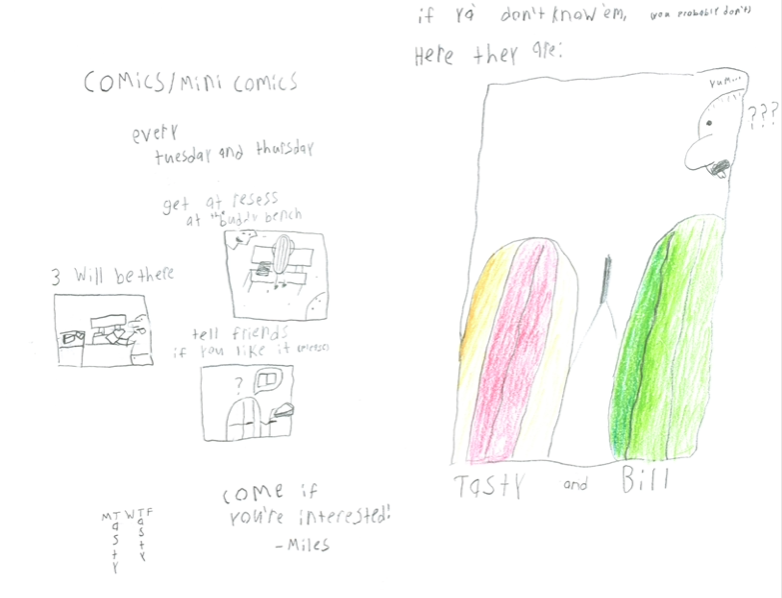 COMICS/MINI COMICS
every
tuesday and thursday
get at resess
at the buddy bench
3 Will be there
tell friends
if you like it
?
come if
you're interested!
-Miles
MTWTF
asty
asty
if ya don't know 'em, (you probablie don't)
Here they are:
yum...
???
Tasty and Bill